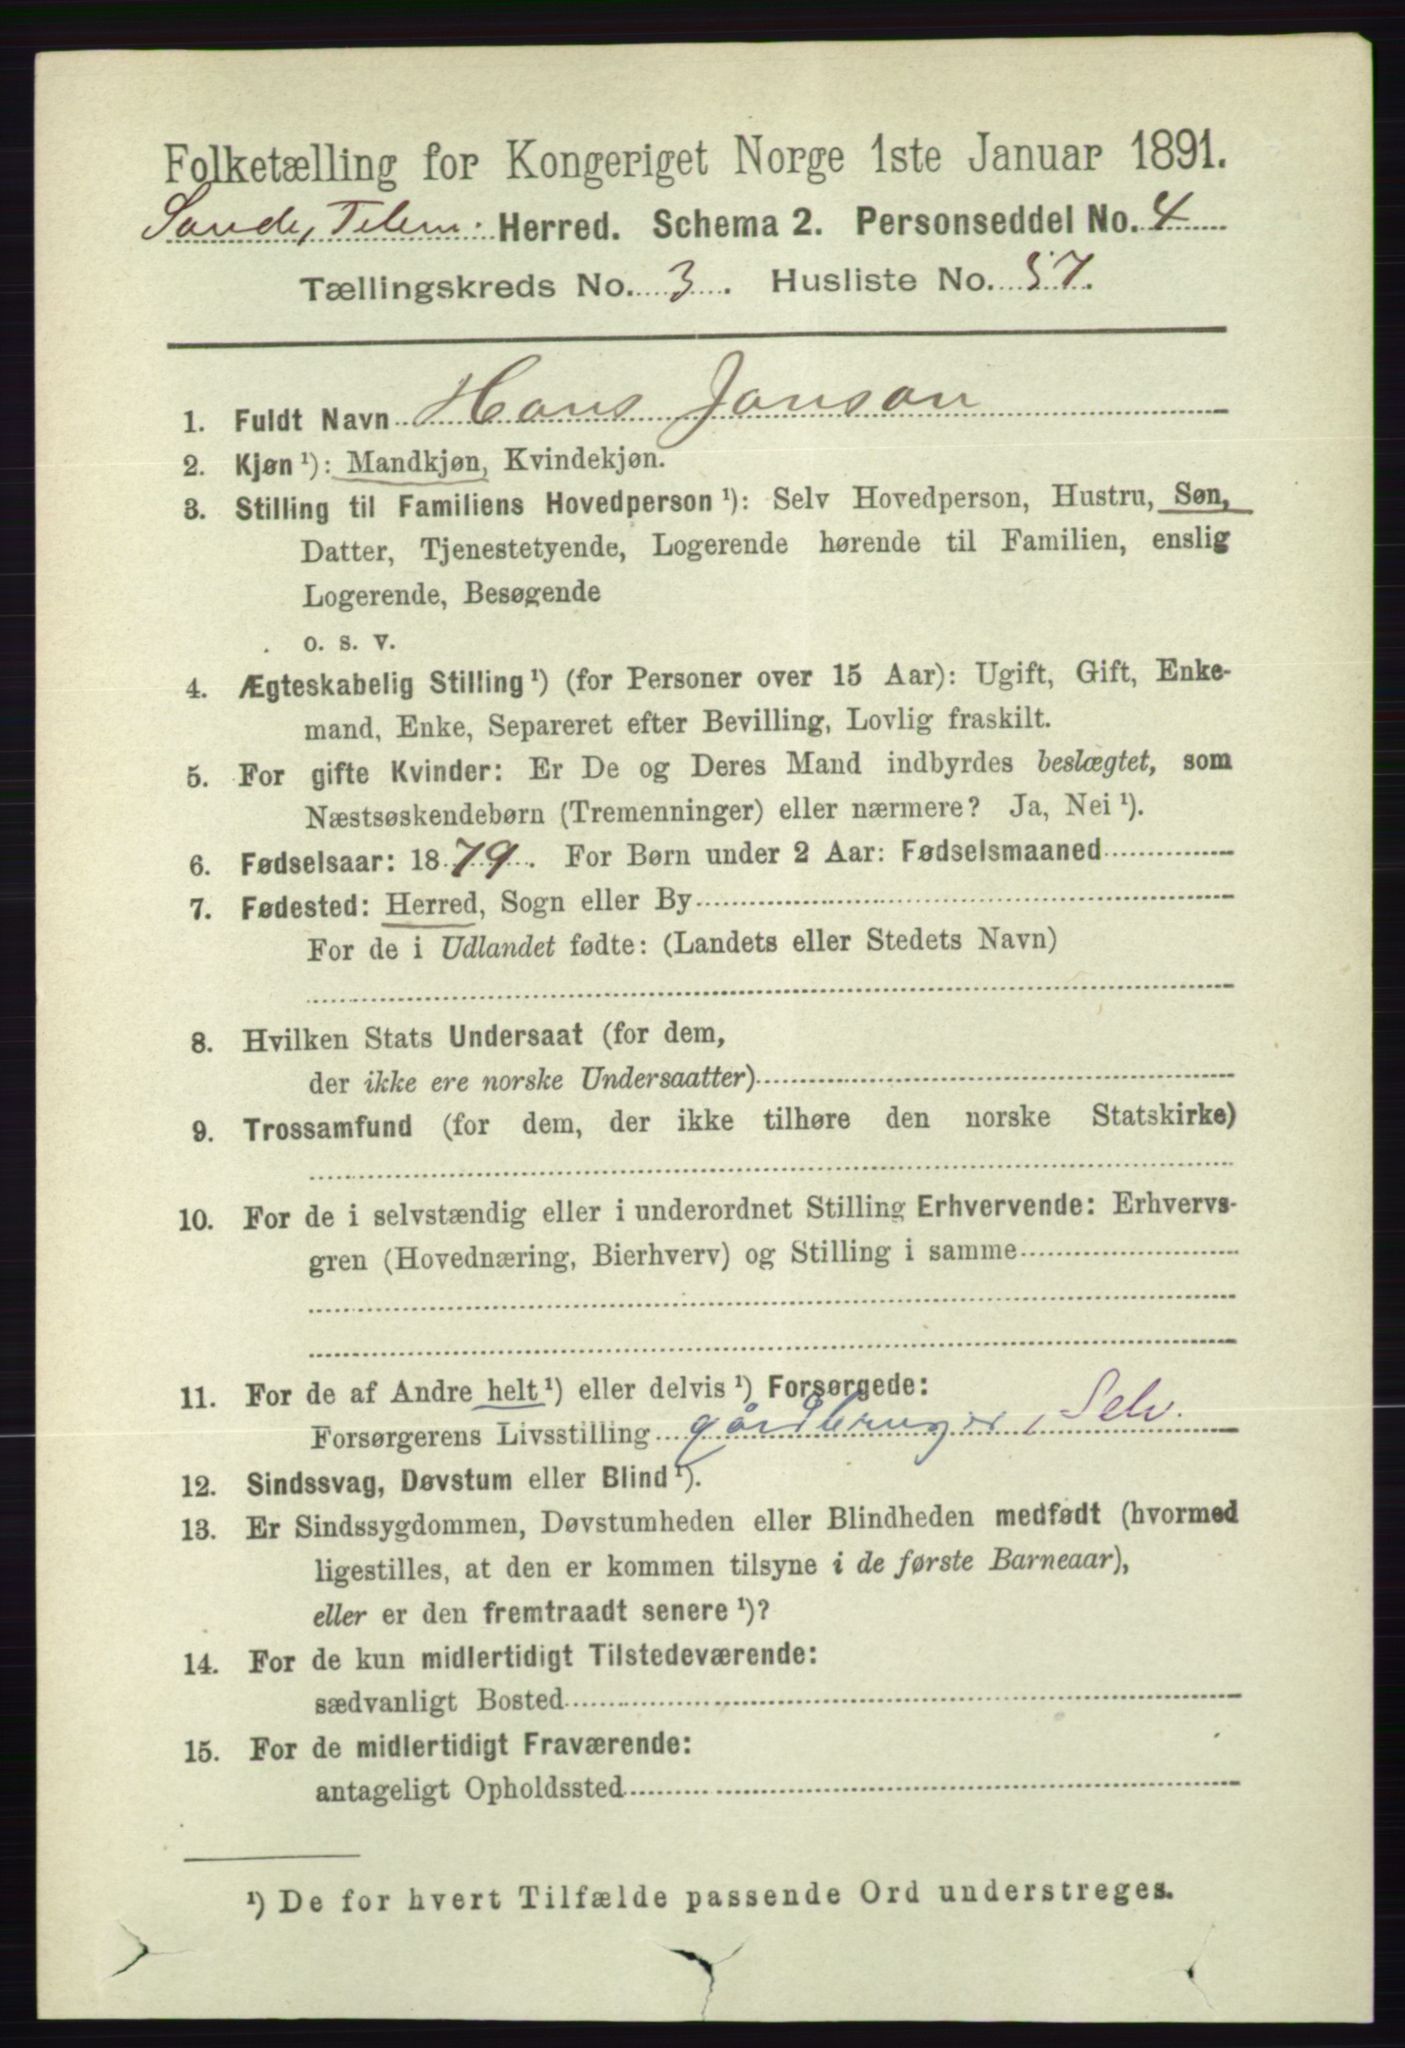 Folketælling for Kongeriget Norge 1ste Januar 1891.
Herred. Schema 2. Personseddel No. 4
Tællingskreds No. 3. Husliste No. 57.
1. Fuldt Navn Hans Janson
2. Kjøn ¹): Mandkjøn, Kvindekjøn.
3. Stilling til Familiens Hovedperson ¹): Selv Hovedperson, Hustru, Søn,
Datter, Tjenestetyende, Logerende hørende til Familien, enslig
Logerende, Besøgende
o. s. v.
4. Ægteskabelig Stilling ¹) (for Personer over 15 Aar): Ugift, Gift, Enke-
mand, Enke, Separeret efter Bevilling, Lovlig fraskilt.
5. For gifte Kvinder: Er De og Deres Mand indbyrdes beslægtet, som
Næstsøskendebørn (Tremenninger) eller nærmere? Ja, Nei ¹).
6. Fødselsaar: 1879. For Børn under 2 Aar: Fødselsmaaned
7. Fødested: Herred, Sogn eller By
For de i Udlandet fødte: (Landets eller Stedets Navn)
8. Hvilken Stats Undersaat (for dem,
der ikke ere norske Undersaatter)
9. Trossamfund (for dem, der ikke tilhøre den norske Statskirke)
10. For de i selvstændig eller i underordnet Stilling Erhvervende: Erhvervs-
gren (Hovednæring, Bierhverv) og Stilling i samme
11. For de af Andre helt ¹) eller delvis ¹) Forsørgede:
Forsørgerens Livsstilling gårdbruger, Selv.
12. Sindssvag, Døvstum eller Blind ¹).
13. Er Sindssygdommen, Døvstumheden eller Blindheden medfødt (hvormed
ligestilles, at den er kommen tilsyne i de første Barneaar),
eller er den fremtraadt senere ¹)?
14. For de kun midlertidigt Tilstedeværende:
sædvanligt Bosted
15. For de midlertidigt Fraværende:
antageligt Opholdssted
¹) De for hvert Tilfælde passende Ord understreges.